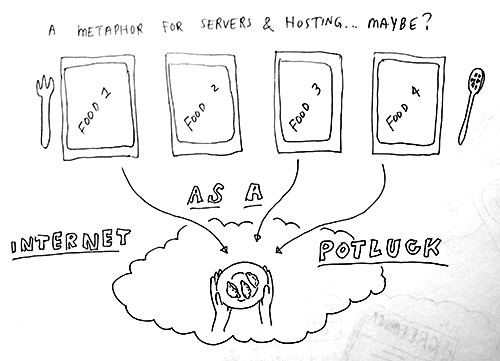 A METAPHOR FOR SERVERS & HOSTING... MAYBE?
FOOD 1
FOOD 2
FOOD 3
FOOD 4
AS A
INTERNET
POTLUCK